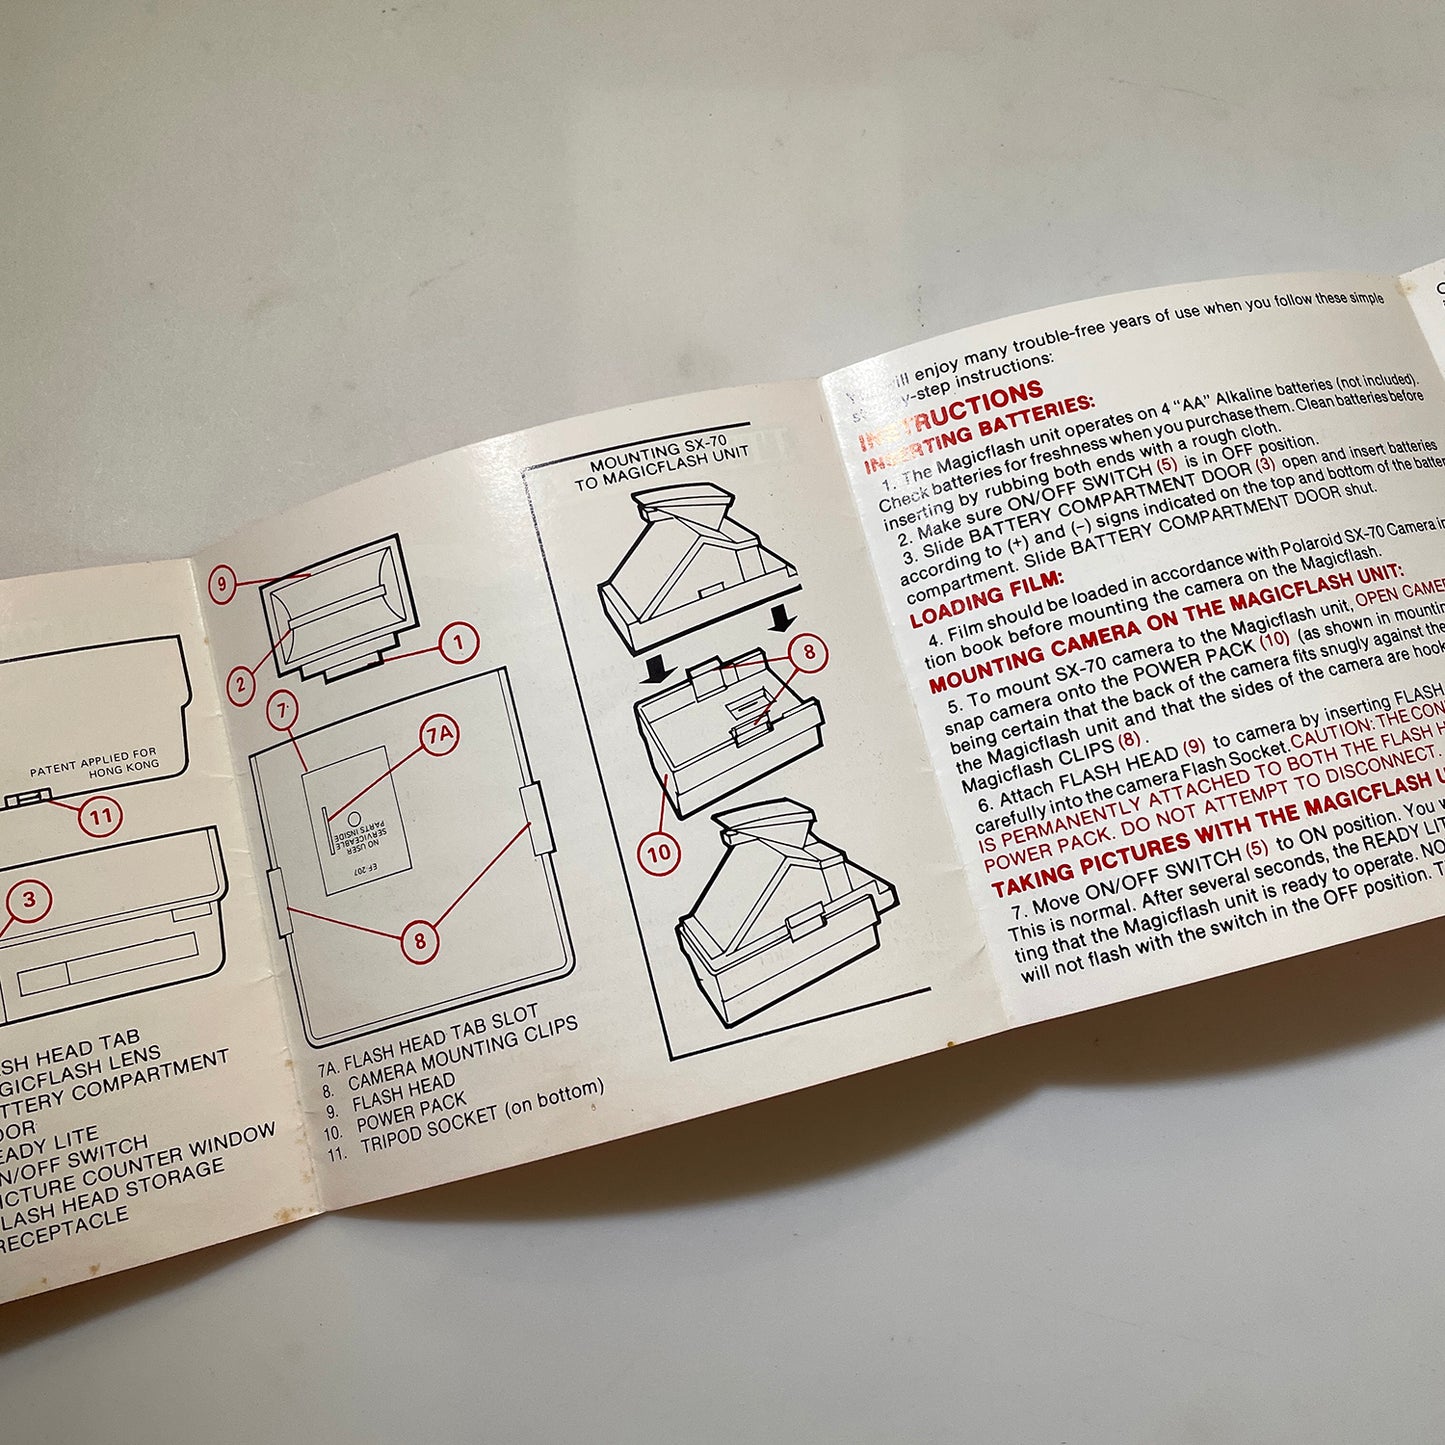 PATENT APPLIED FOR
HONG KONG
11
3
SH HEAD TAB
GICFLASH LENS
TTERY COMPARTMENT
OOR
EADY LITE
N/OFF SWITCH
ICTURE COUNTER WINDOW
LASH HEAD STORAGE
RECEPTACLE
9
1
2
7
7A
NO USER
SERVICEABLE
PARTS INSIDE
EF-207
8
7A. FLASH HEAD TAB SLOT
8. CAMERA MOUNTING CLIPS
9. FLASH HEAD
10. POWER PACK
11. TRIPOD SOCKET (on bottom)
MOUNTING SX-70
TO MAGICFLASH UNIT
8
10
ill enjoy many trouble-free years of use when you follow these simple
y-step instructions:
INSTRUCTIONS
INSERTING BATTERIES:
1. The Magicflash unit operates on 4 "AA" Alkaline batteries (not included).
Check batteries for freshness when you purchase them. Clean batteries before
inserting by rubbing both ends with a rough cloth.
2. Make sure ON/OFF SWITCH (5) is in OFF position.
3. Slide BATTERY COMPARTMENT DOOR (3) open and insert batteries
according to (+) and (–) signs indicated on the top and bottom of the batter
compartment. Slide BATTERY COMPARTMENT DOOR shut.
LOADING FILM:
4. Film should be loaded in accordance with Polaroid SX-70 Camera in
tion book before mounting the camera on the Magicflash.
MOUNTING CAMERA ON THE MAGICFLASH UNIT:
5. To mount SX-70 camera to the Magicflash unit, OPEN CAME
snap camera onto the POWER PACK (10) (as shown in mountin
being certain that the back of the camera fits snugly against the
the Magicflash unit and that the sides of the camera are hook
Magicflash CLIPS (8).
6. Attach FLASH HEAD (9) to camera by inserting FLASH
carefully into the camera Flash Socket. CAUTION: THE CON
IS PERMANENTLY ATTACHED TO BOTH THE FLASH H
POWER PACK. DO NOT ATTEMPT TO DISCONNECT.
TAKING PICTURES WITH THE MAGICFLASH U
7. Move ON/OFF SWITCH (5) to ON position. You w
This is normal. After several seconds, the READY LIT
ting that the Magicflash unit is ready to operate. NO
will not flash with the switch in the OFF position. T